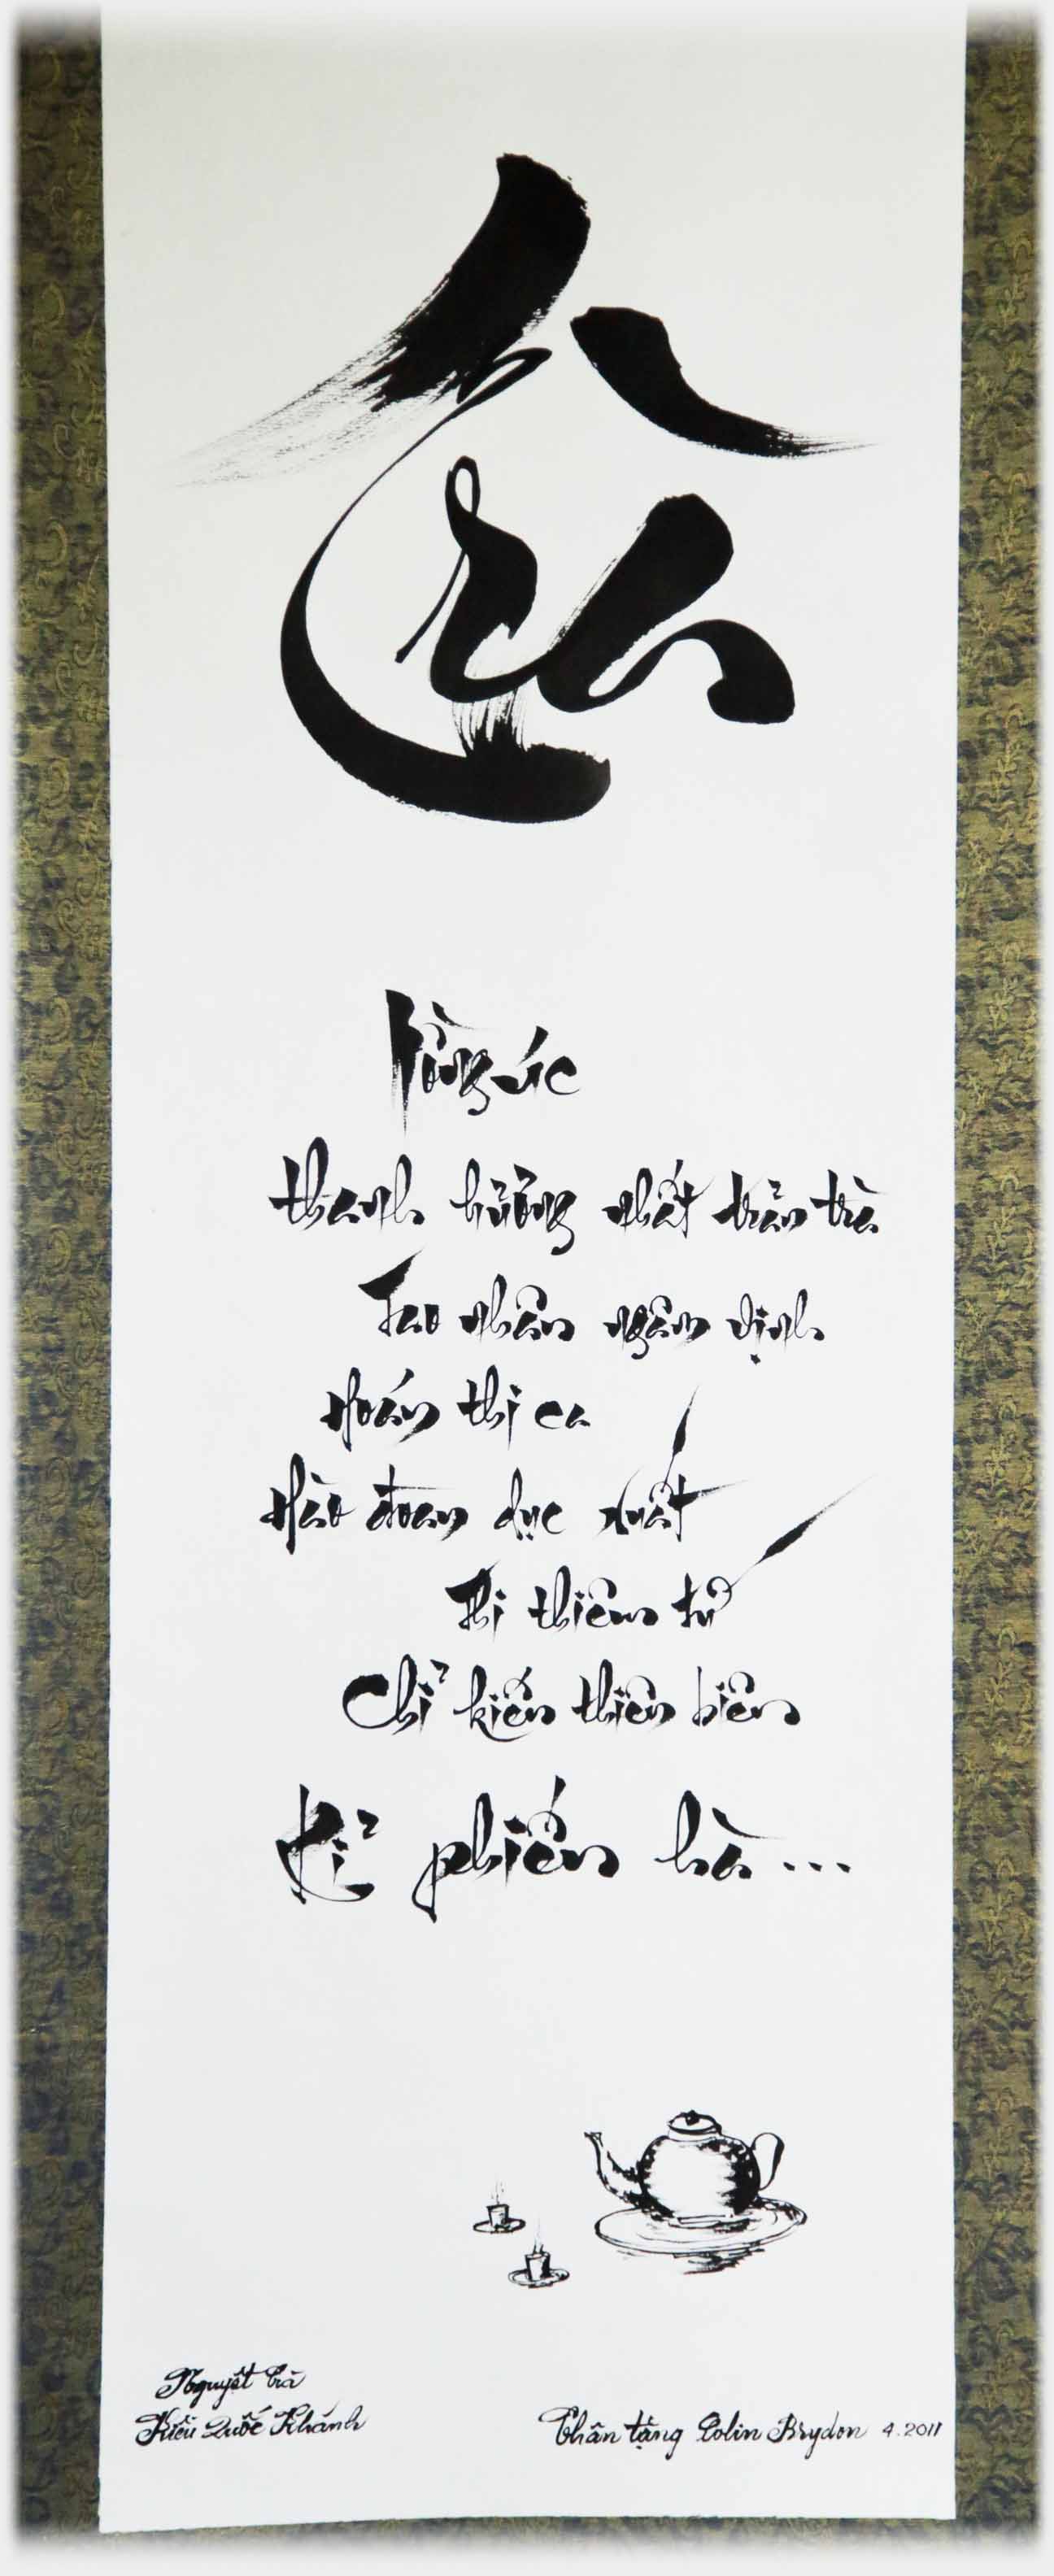 Trà
Nồng úc
thanh hương nhất trản trà
Tao nhân ngâm vịnh
Hoán thi ca
Hào đoan dục xuất
Thi thiêm tứ
Chỉ kiến thiên biên
Kỉ phiến hà ...
Nguyệt Trà
Kiều Quốc Khánh
Thân tặng Colin Brydon 4.2011